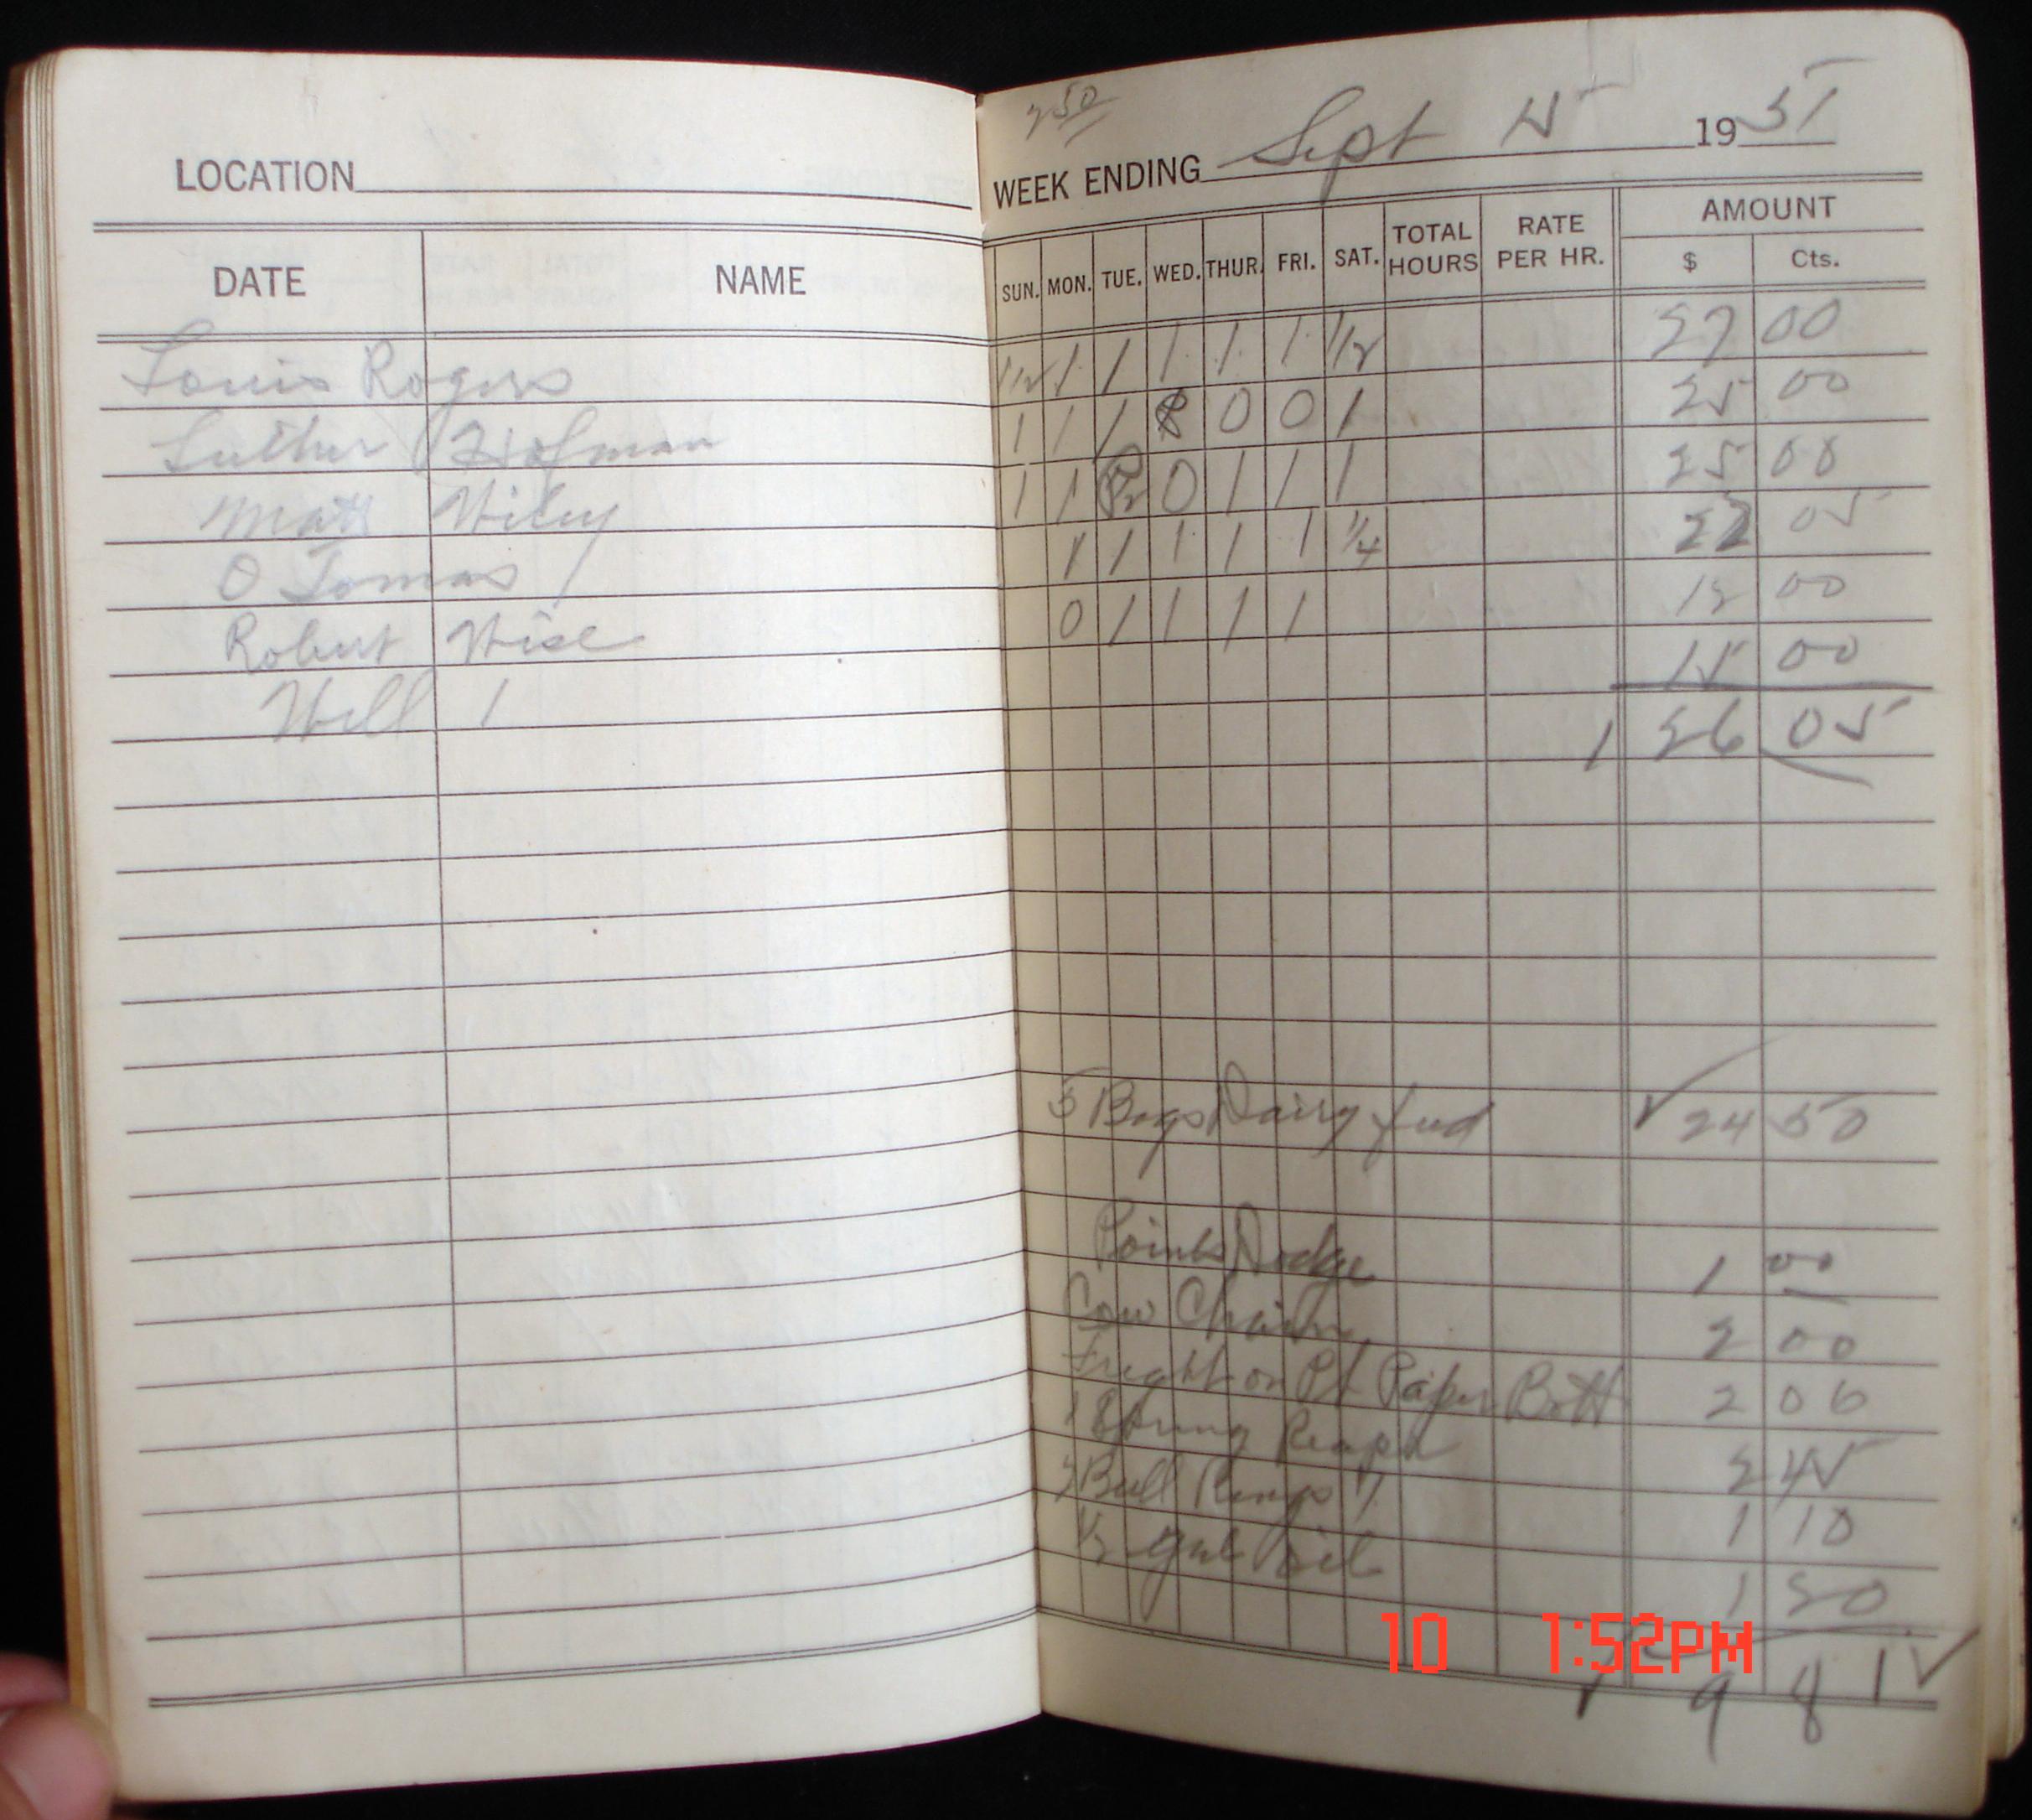 LOCATION
DATE NAME
Louis Rogers
Luther Hofman
Matt Wiley
O Tomas
Robert Wise
Will 1
2 50
WEEK ENDING Sept 15 1951
SUN. MON. TUE. WED. THUR. FRI. SAT. TOTAL HOURS RATE PER HR. AMOUNT $ Cts.
1/2 1 1 1 1 1 1/2 27 00
1 1 1 0 0 1 25 00
1 1 0 1 1 1 25 00
1 1 1 1 1 1/4 22 05
0 1 1 1 1 12 00
15 00
1 26 05
5 Bags Dairy feed 24 50
Points Dodge 1 00
Cow Chain 2 00
Freight on Paper Bott 2 06
1 Spring 2 45
2 Bull Rings 1 10
1/2 gal oil 1 50
10 1:52PM
1 9 8 1